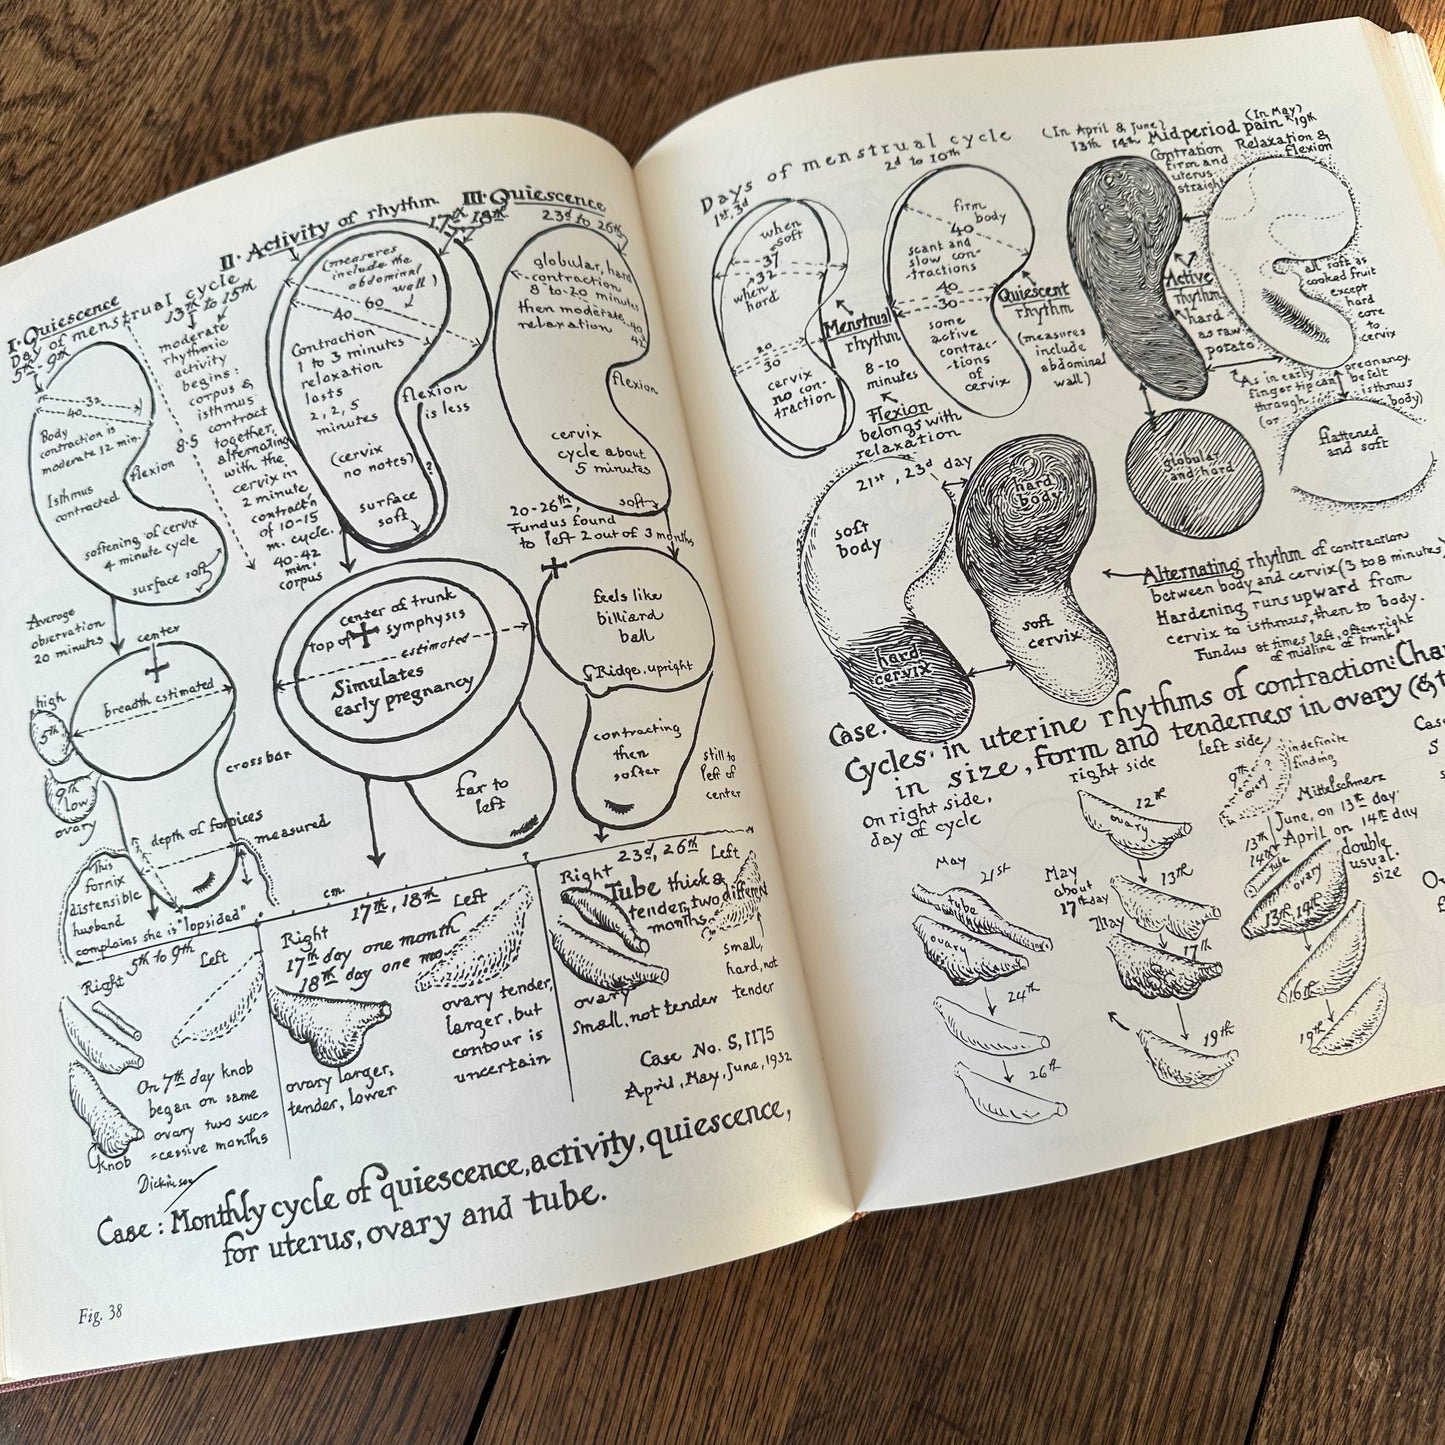 I. Quiescence
Day of menstrual cycle
5th - 9th
13th to 15th
moderate
rhythmic
activity
begins:
corpus &
isthmus
contract
together,
alternating
with the
cervix in
2 minute
contract'n
of 10-15
m. cycle.
40-42
min.
corpus
32
40
Body
contraction is
moderate 12 min.
flexion
8.5
Isthmus
contracted
softening of cervix
4 minute cycle
surface soft
Average
observation
20 minutes
center
breadth estimated
high
5th
9th
low
ovary
crossbar
depth of fornices
measured
This
fornix
distensible
husband
complains she is "lopsided"
II. Activity of rhythm
17th 18th
(measures
include the
abdominal
wall)
60
40
Contraction
1 to 3 minutes
relaxation
lasts
2, 2, 5
minutes
flexion
is less
(cervix
no notes)
surface
soft
center of trunk
top of symphysis
estimated
Simulates
early pregnancy
far to
left
III. Quiescence
23d to 26th
globular, hard
contraction
8 to 20 minutes
then moderate
relaxation
40
42
flexion
cervix
cycle about
5 minutes
soft
20-26th,
Fundus found
to left 2 out of 3 months
feels like
billiard
ball
Ridge, upright
contracting
then
softer
still to
left of
center
cm.
5th to 9th
Right
Left
On 7th day knob
began on same
ovary two suc=
=cessive months
knob
Dickinson
17th, 18th
Right
Left
17th day one month
18th day one mo
ovary larger,
tender, lower
ovary tender,
larger, but
contour is
uncertain
23d, 26th
Right
Left
Tube thick &
tender, two different
months
ovary
small, not tender
small,
hard, not
tender
Case No. S, 1175
April, May, June, 1932
Case: Monthly cycle of quiescence, activity, quiescence,
for uterus, ovary and tube.
Fig. 38
Days of menstrual cycle
1st, 3d
2d to 10th
when
soft
37
32
when
hard
30
cervix
no con-
traction
Menstrual
rhythm
8-10
minutes
Flexion
belongs with
relaxation
firm
body
40
scant and
slow con-
-tractions
40
30
some
active
contrac-
-tions
of
cervix
Quiescent
rhythm
(measures
include
abdominal
wall)
(In April & June)
13th 14th
Midperiod pain
(In May)
19th
Contration
firm and
uterus
straight
Relaxation &
flexion
Active
rhythm
hard
as raw
potato
all soft as
cooked fruit
except
hard
core
to
cervix
As in early pregnancy,
finger tip can be felt
through isthmus
(or body)
globular
and hard
flattened
and soft
21st, 23d day
soft
body
hard
cervix
hard
body
soft
cervix
Alternating rhythm of contraction
between body and cervix (3 to 8 minutes)
Hardening runs upward from
cervix to isthmus, then to body.
Fundus at times left, often right
of midline of trunk
Case.
Cycles in uterine rhythms of contraction: Cha
in size, form and tenderness in ovary (& t
on right side,
day of cycle
right side
left side
May
21st
tube
ovary
24th
26th
12th
ovary
May
about
17th day
13th
May
17th
19th
9th
ovary
?
indefinite
finding
Mittelschmerz
June, on 13th day
April on 14th day
13th
14th
tube
ovary
13th, 14th
double
usual
size
16th
19th
Case
S